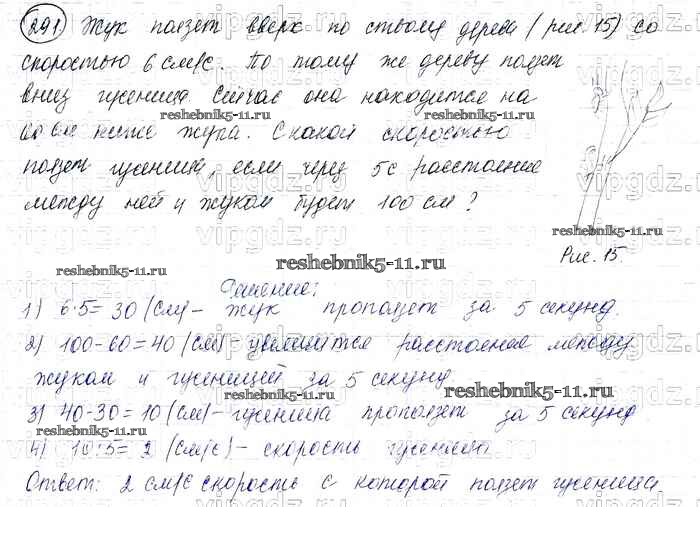 291 Жук ползет вверх по стволу дерева (рис. 15) со
скоростью 6 см/с. По тому же дереву ползет
вниз гусеница. Сейчас она находится на
60 см ниже жука. С какой скоростью
ползет гусеница, если через 5с расстояние
между ней и жуком будет 100 см?
Рис. 15.
Решение:
1) 6·5=30 (см) - жук проползет за 5 секунд.
2) 100-60=40 (см) - увеличится расстояние между
жуком и гусеницей за 5 секунд
3) 40-30=10 (см) - гусеница проползет за 5 секунд
4) 10:5=2 (см/с) - скорость гусеницы.
Ответ: 2 см/с скорость с которой ползет гусеница.
reshebnik5-11.ru
reshebnik5-11.ru
reshebnik5-11.ru
reshebnik5-11.ru
reshebnik5-11.ru
reshebnik5-11.ru
vipgdz.ru